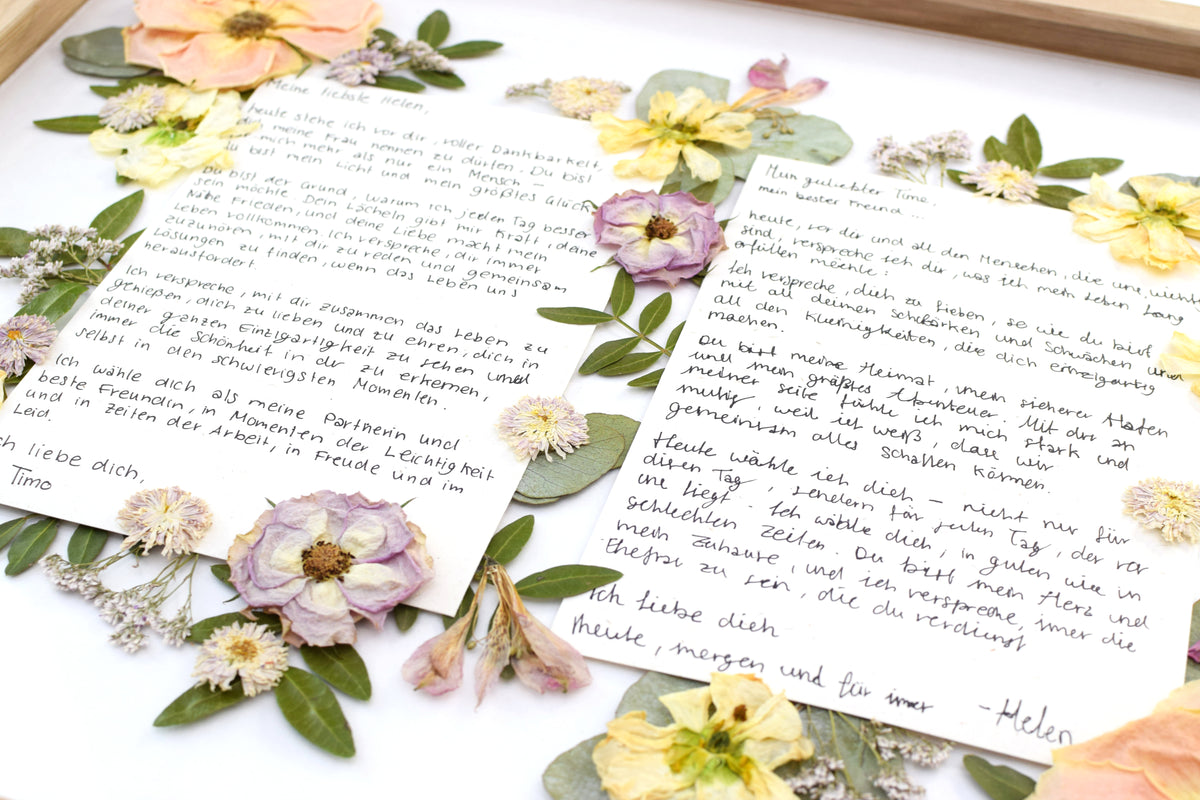 Meine liebste Helen,
heute stehe ich vor dir, voller Dankbarkeit,
meine Frau nennen zu dürfen. Du bist
mich mehr als nur ein Mensch –
Du bist mein Licht und mein größtes Glück
Du bist der Grund, warum ich jeden Tag besser
sein möchte. Dein Lächeln gibt mir Kraft, deine
Nähe Frieden, und deine Liebe macht mein
Leben vollkommen. Ich verspreche, dir immer
zuzuhören, mit dir zu reden und gemeinsam
Lösungen zu finden, wenn das Leben uns
herausfordert
Ich verspreche, mit dir zusammen das Leben zu
genießen, dich zu lieben und zu ehren, dich in
deiner ganzen Einzigartigkeit zu sehen und
immer die Schönheit in dir zu erkennen,
selbst in den schwierigsten Momenten.
Ich wähle dich als meine Partnerin und
beste Freundin, in Momenten der Leichtigkeit
und in Zeiten der Arbeit, in Freude und im
Leid.
Ich liebe dich,
Timo
Mein geliebter Timo,
mein bester Freund...
heute, vor dir und all den Menschen, die uns wichtig
sind, verspreche ich dir, was ich mein Leben lang
erfüllen möchte:
Ich verspreche, dich zu lieben, so wie du bist
mit all deinen Stärken und Schwächen und
all den Kleinigkeiten, die dich einzigartig
machen.
Du bist meine Heimat, mein sicherer Hafen
und mein größtes Abenteuer. Mit dir an
meiner Seite fühle ich mich stark und
mutig, weil ich weiß, dass wir
gemeinsam alles schaffen können.
Heute wähle ich dich – nicht nur für
diesen Tag, sondern für jeden Tag, der vor
uns liegt. Ich wähle dich, in guten wie in
schlechten Zeiten. Du bist mein Herz und
mein Zuhause, und ich verspreche, imer die
Ehefrau zu sein, die du verdienst
Ich liebe dich
Heute, morgen und für imer
-Helen